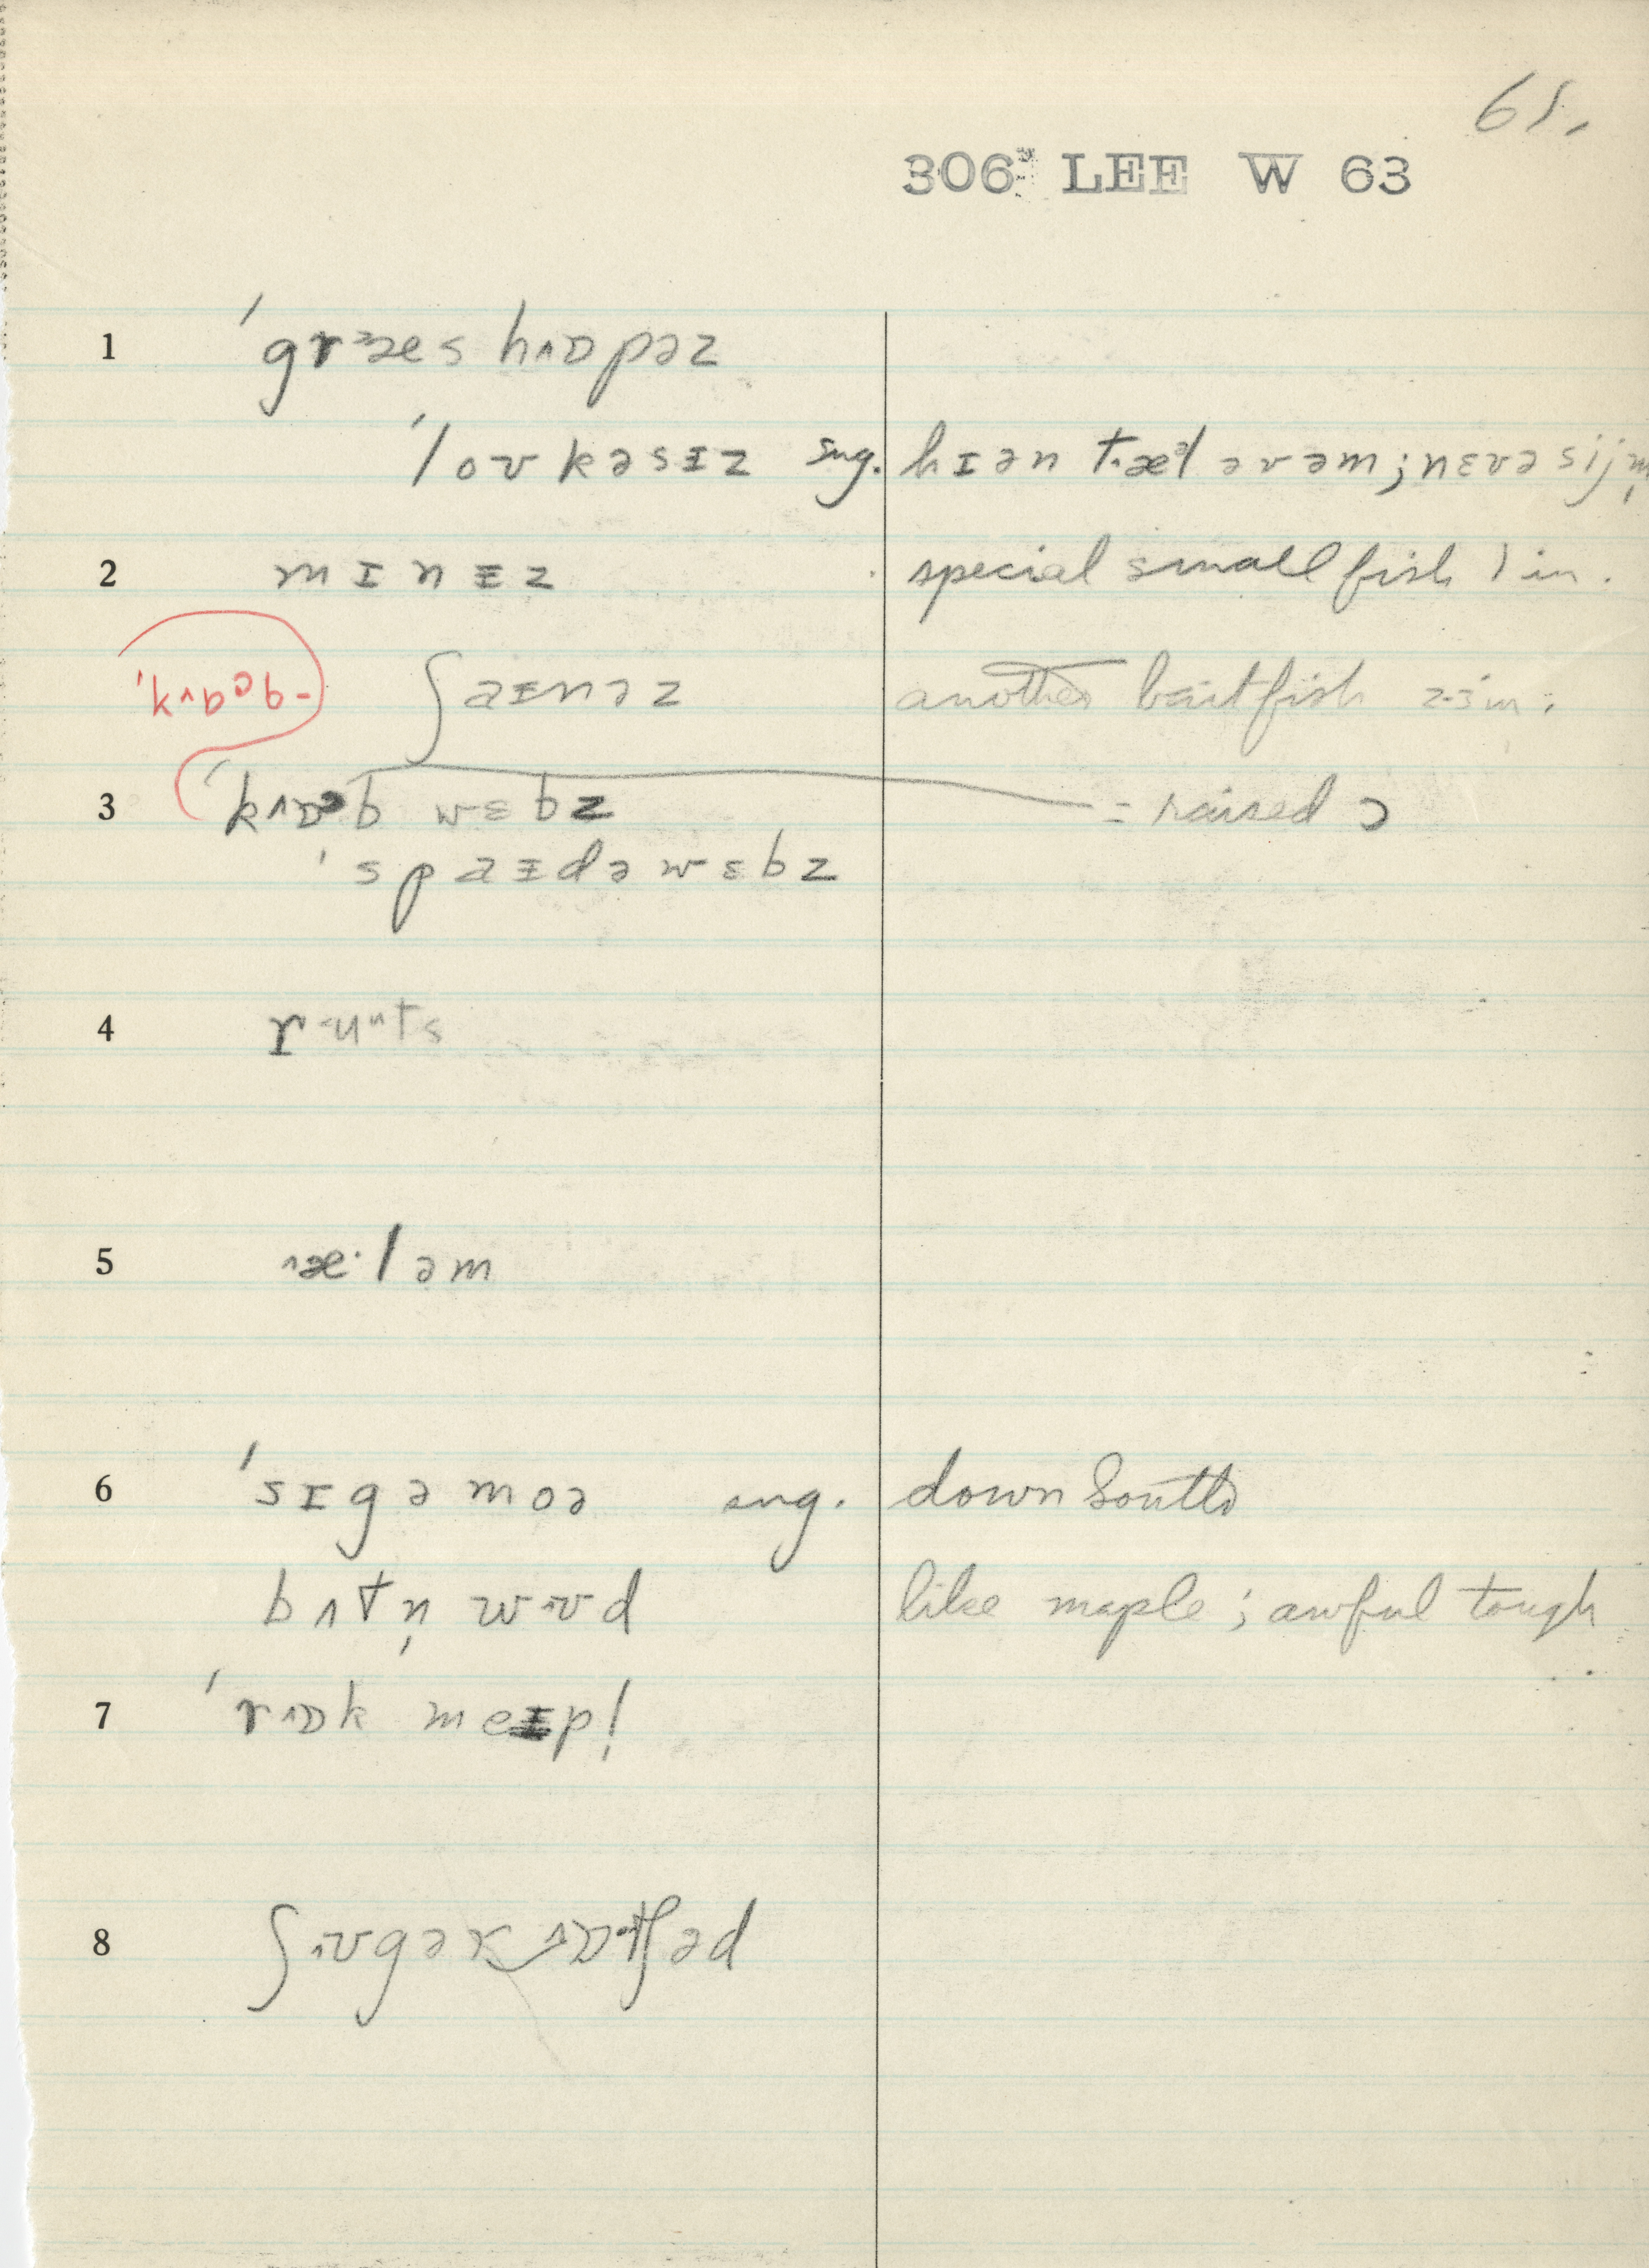 61.
306 LEE W 63
1 ˈgrɜæs hʌɒpəz
ˈloʊkəsɪz sug. hɪən tæəl əvəm; nɛvə sijm̩
2 mɪnɪz special small fish 1 in.
ʃaɪnəz another baitfish 2-3 in.
3 ˈkʌɒəb wɛbz = raised ɔ
ˈspaɪdəwɛbz
4
5 ʌæ·ləm
6 ˈsɪgəmoə sug. down South
bʌtn̩ wʊd like maple; awful tough
7 ˈrʌɒk meɪp!
8 ʃʌʊgər ʌɒtʃəd